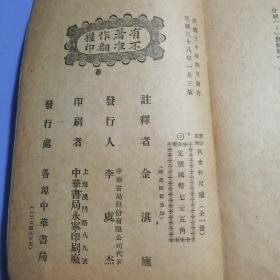 民國三十八年一月三版
秋水軒尺牘(全一冊)
定價國幣七元五角
(郵運匯費另加)
註釋者 金湛廬
發行人 李虞杰
中華書局股份有限公司代表
印刷者 中華書局永寧印刷廠
上海澳門路八九號
發行處 各埠中華書局
有著作權
不准翻印